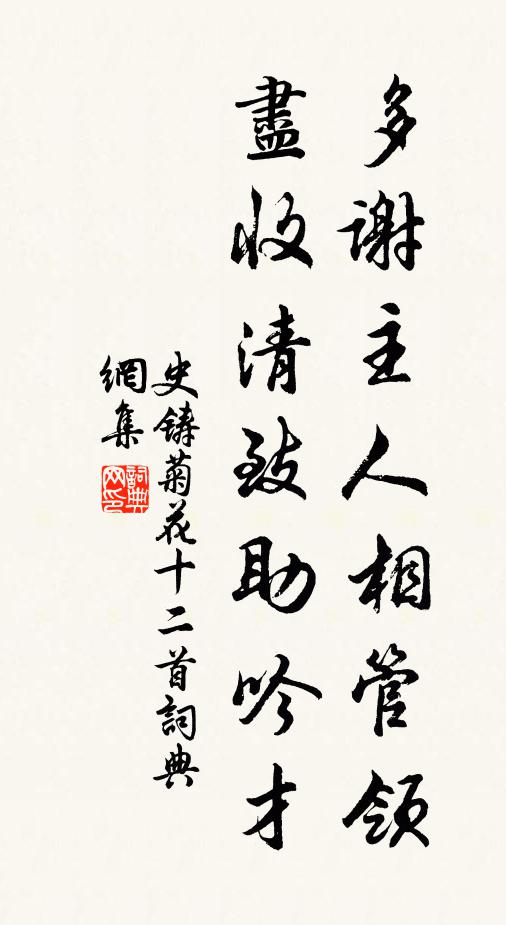 多謝主人相管領
盡收清致助吟才
史鑄菊花十二首詞典
網集
詞典
网印